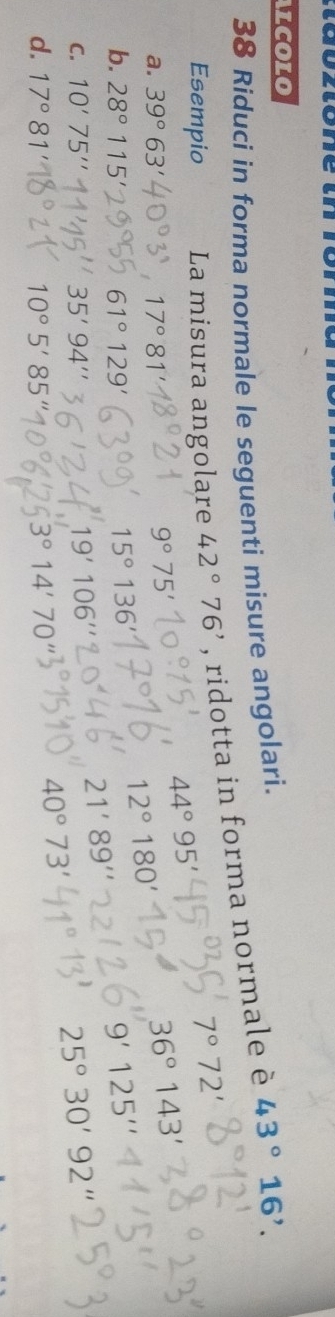 ALCOLO
38 Riduci in forma normale le seguenti misure angolari.
Esempio La misura angolare 42° 76', ridotta in forma normale è 43° 16'.
a. 39° 63' 40°3' 17° 81' 18°21 9° 75' 10°15' 44° 95' 45°35' 7° 72' 8°12'
b. 28° 115' 29°55 61° 129' 63°9' 15° 136' 17°16' 12° 180' 15° 36° 143' 38°23'
c. 10' 75'' 11'15'' 35' 94'' 36'24'' 19' 106'' 20'46'' 21' 89'' 22'26'' 9' 125'' 11'5''
d. 17° 81' 18°21' 10° 5' 85'' 10°6'25 3° 14' 70'' 3°15'10'' 40° 73' 41°13' 25° 30' 92'' 25°3